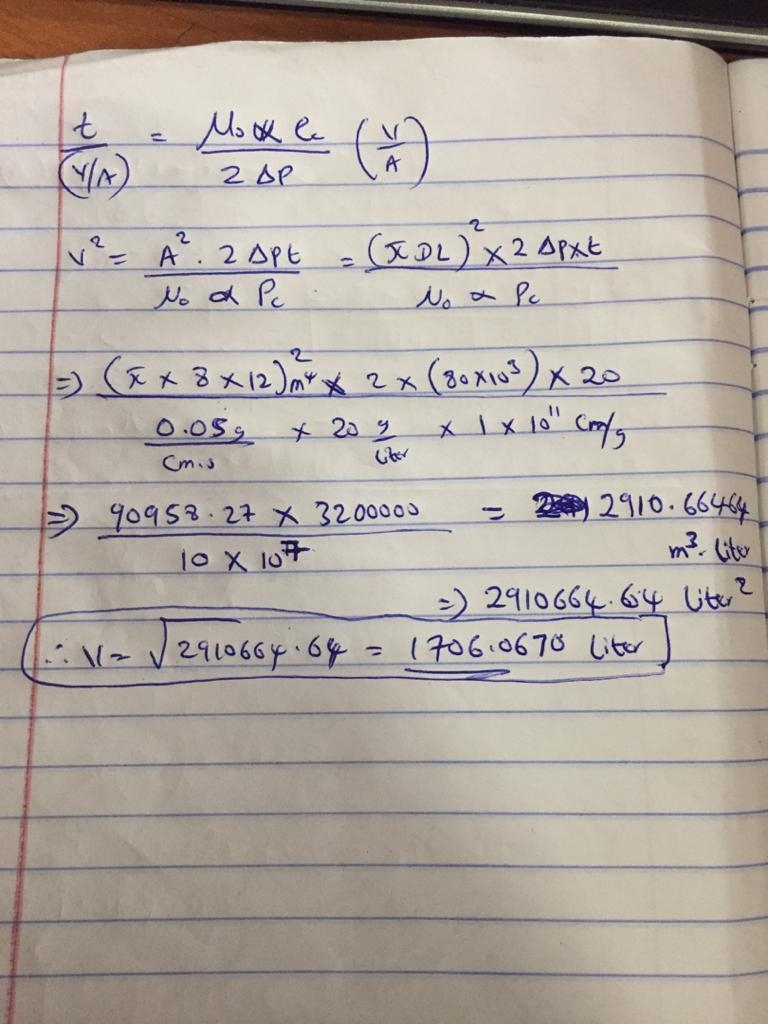 t/(V/A) = μ₀ α ρc / 2 ΔP (V/A)
V² = A² · 2 ΔPt / μ₀ α Pc = (π DL)² × 2 ΔP×t / μ₀ α Pc
⇒ (π × 8 × 12)² m⁴ × 2 × (80×10³) × 20 / 0.05 g/cm.s × 20 g/liter × 1 × 10¹¹ cm/g
⇒ 90958.27 × 3200000 / 10 × 10⁷ = 2910.66464
m³. liter
⇒ 2910664.64 liter²
∴ V = √2910664.64 = 1706.0670 liter